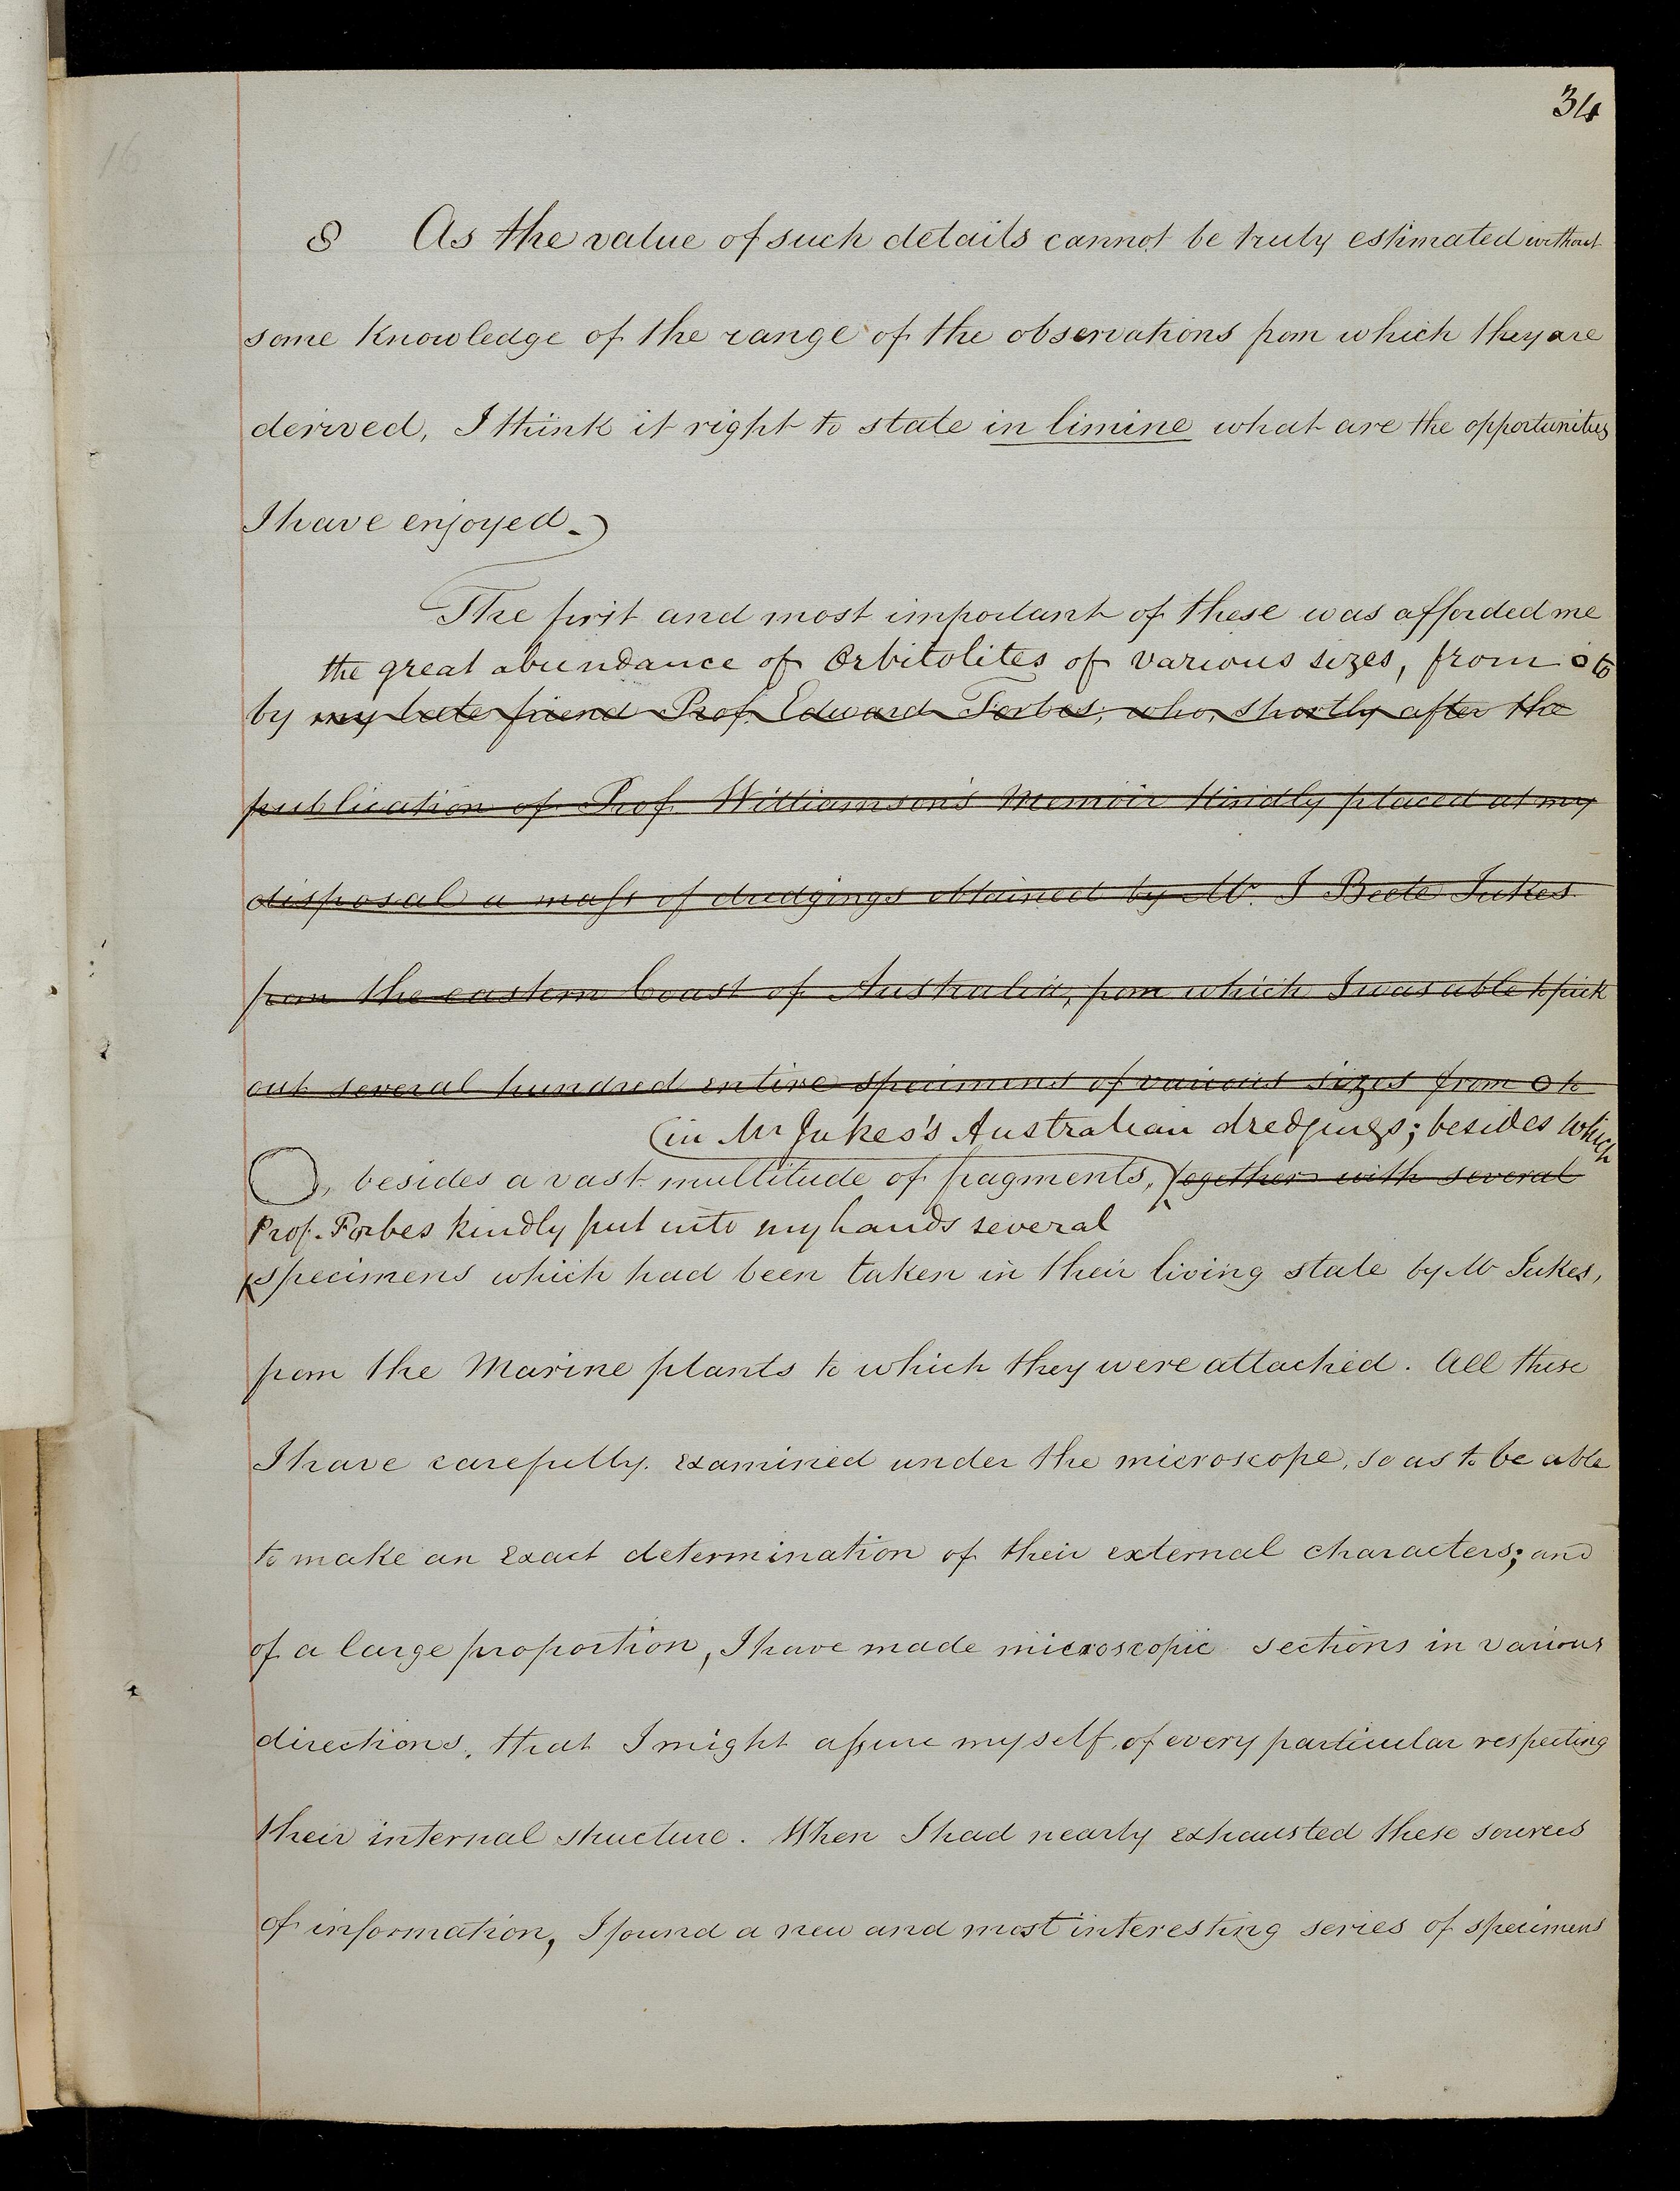 34
16
8 As the value of such details cannot be truly estimated without
some knowledge of the range of the observations from which they are
derived, I think it right to state in limine what are the opportunities
I have enjoyed.
The first and most important of these was afforded me
the great abundance of Orbitolites of various sizes, from o to
by my late friend Prof. Edward Forbes, who, shortly after the
publication of Prof. Williamson's Memoir kindly placed at my
disposal a mass of dredgings obtained by Mr. J Beete Jukes
from the eastern Coast of Australia, from which I was able to pick
out several hundred entire specimens of various sizes from O to
(in Mr Jukes's Australian dredgings; besides which
O, besides a vast multitude of fragments, together with several
Prof. Forbes kindly put into my hands several
specimens which had been taken in their living state by Mr Jukes,
from the Marine plants to which they were attached. All these
I have carefully examined under the microscope, so as to be able
to make an exact determination of their external characters; and
of a large proportion, I have made microscopic sections in various
directions, that I might assure myself of every particular respecting
their internal structure. When I had nearly exhausted these sources
of information, I found a new and most interesting series of specimens